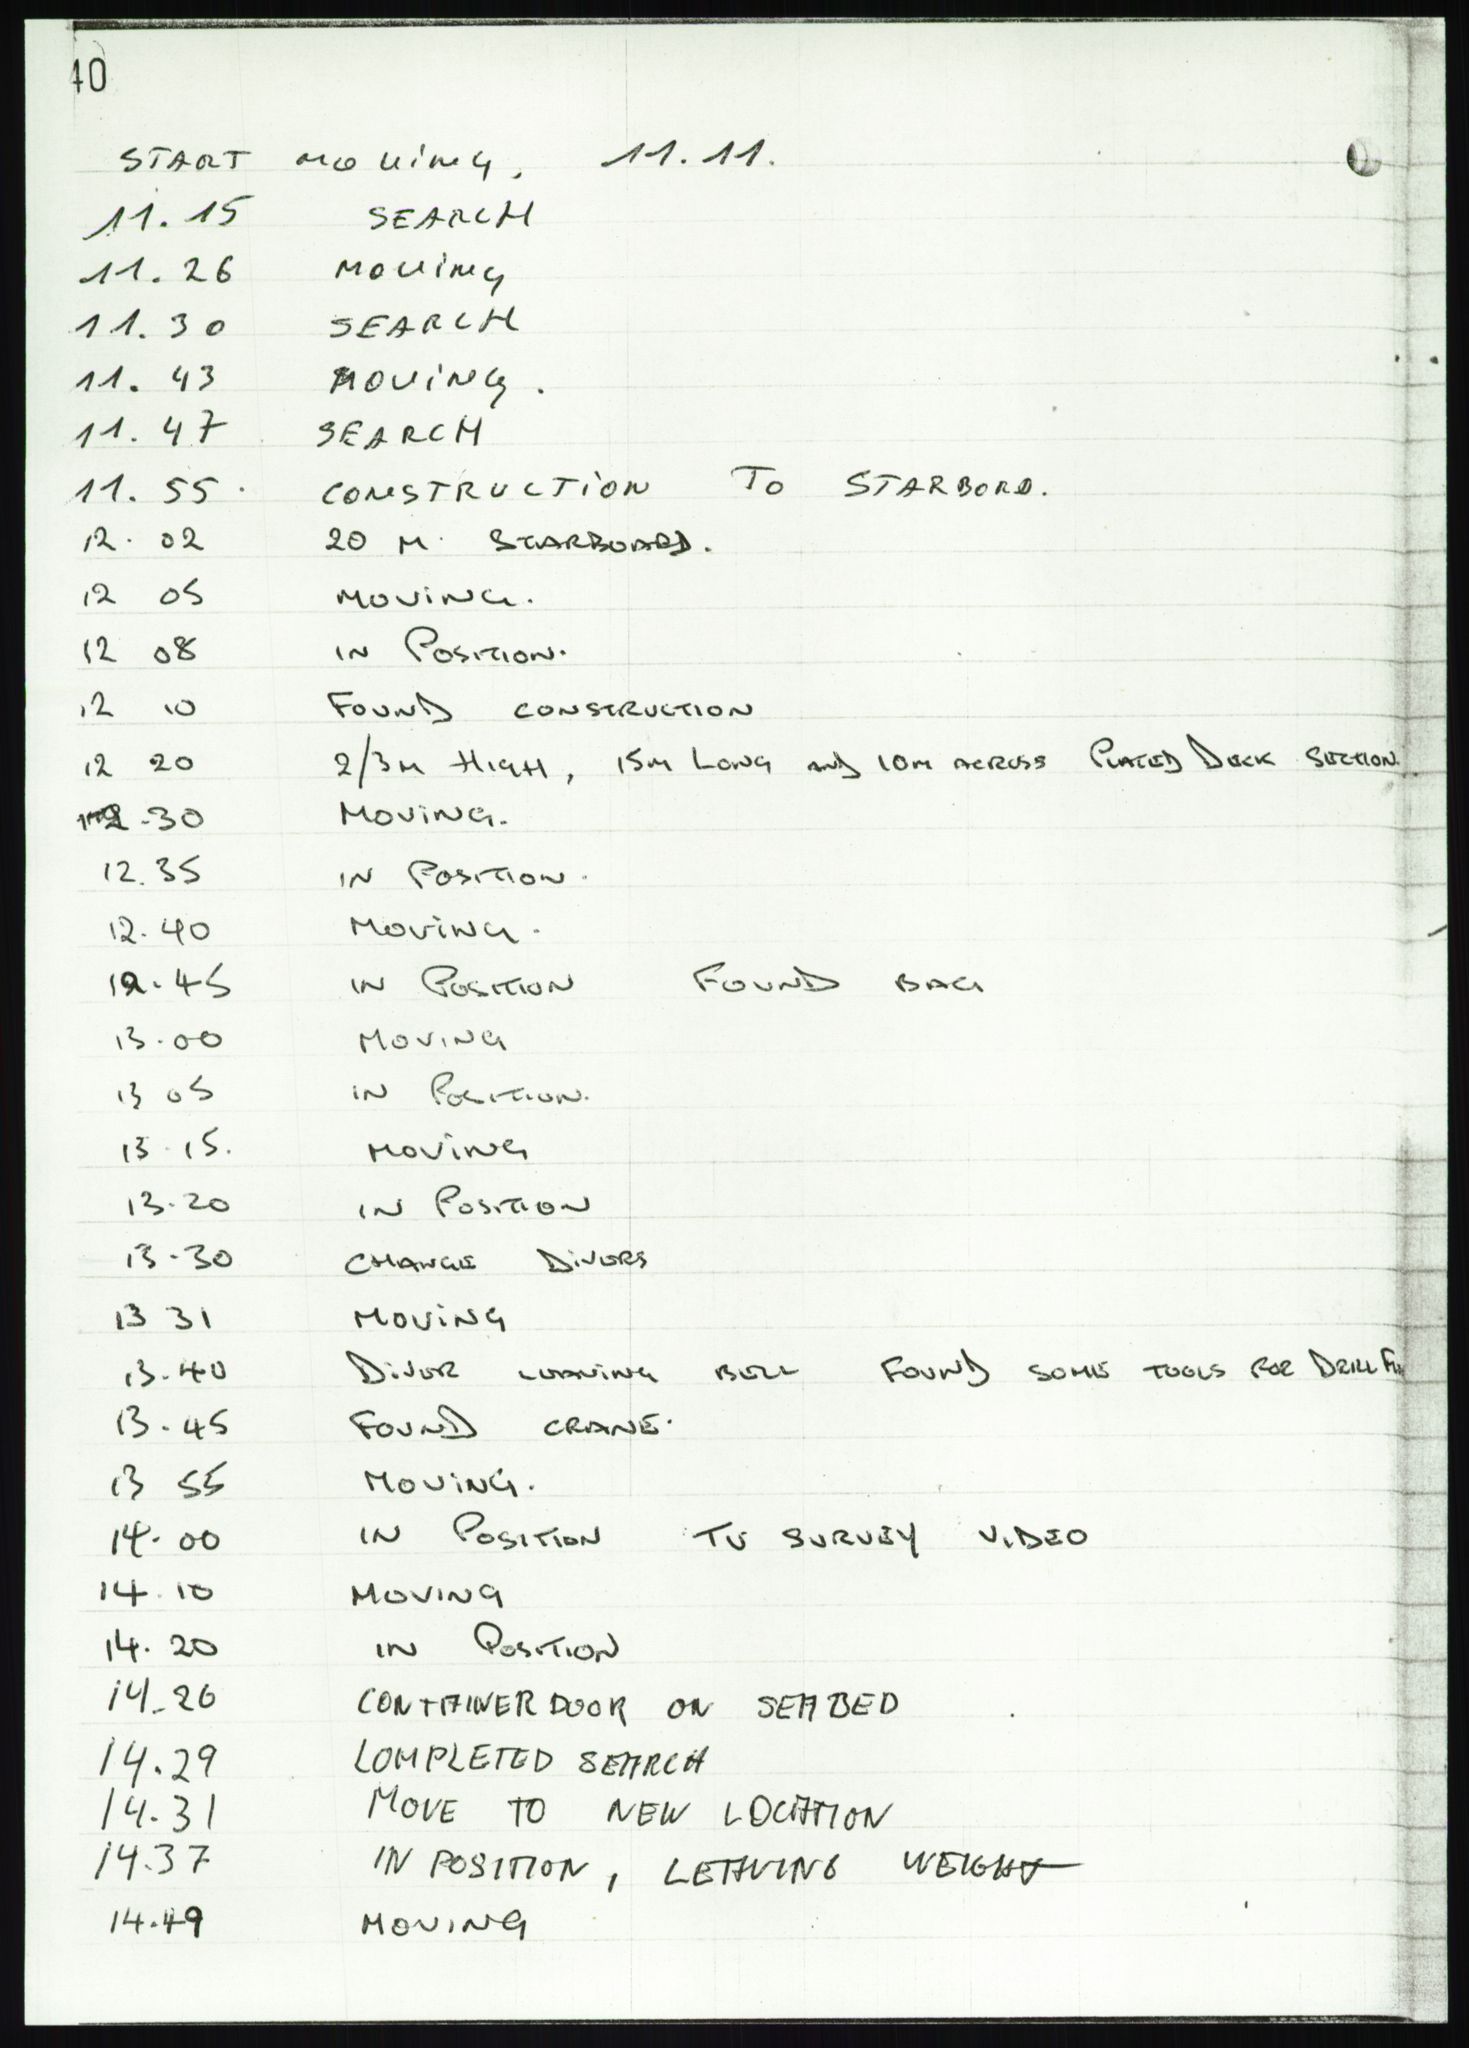 40
START MOVING. 11.11.
11.15 SEARCH
11.26 MOVING
11.30 SEARCH
11.43 MOVING.
11.47 SEARCH
11.55. CONSTRUCTION TO STARBORD.
12.02 20 M. STARBOARD.
12 05 MOVING.
12 08 IN POSITION.
12 10 FOUND CONSTRUCTION
12 20 2/3M HIGH, 15M LONG AND 10M ACROSS PLATED DECK SECTION.
12.30 MOVING.
12.35 IN POSITION.
12.40 MOVING.
12.45 IN POSITION FOUND BAG
13.00 MOVING
13 05 IN POSITION.
13.15. MOVING
13.20 IN POSITION
13.30 CHANGE DIVERS
13 31 MOVING
13.40 DIVER LEAVING BELL FOUND SOME TOOLS FOR DRILL
13.45 FOUND CRANE.
13 55 MOVING.
14.00 IN POSITION TV SURVEY VIDEO
14.10 MOVING
14.20 IN POSITION
14.26 CONTAINERDOOR ON SEABED
14.29 COMPLETED SEARCH
14.31 MOVE TO NEW LOCATION
14.37 IN POSITION, LEAVING WEIGHT
14.49 MOVING